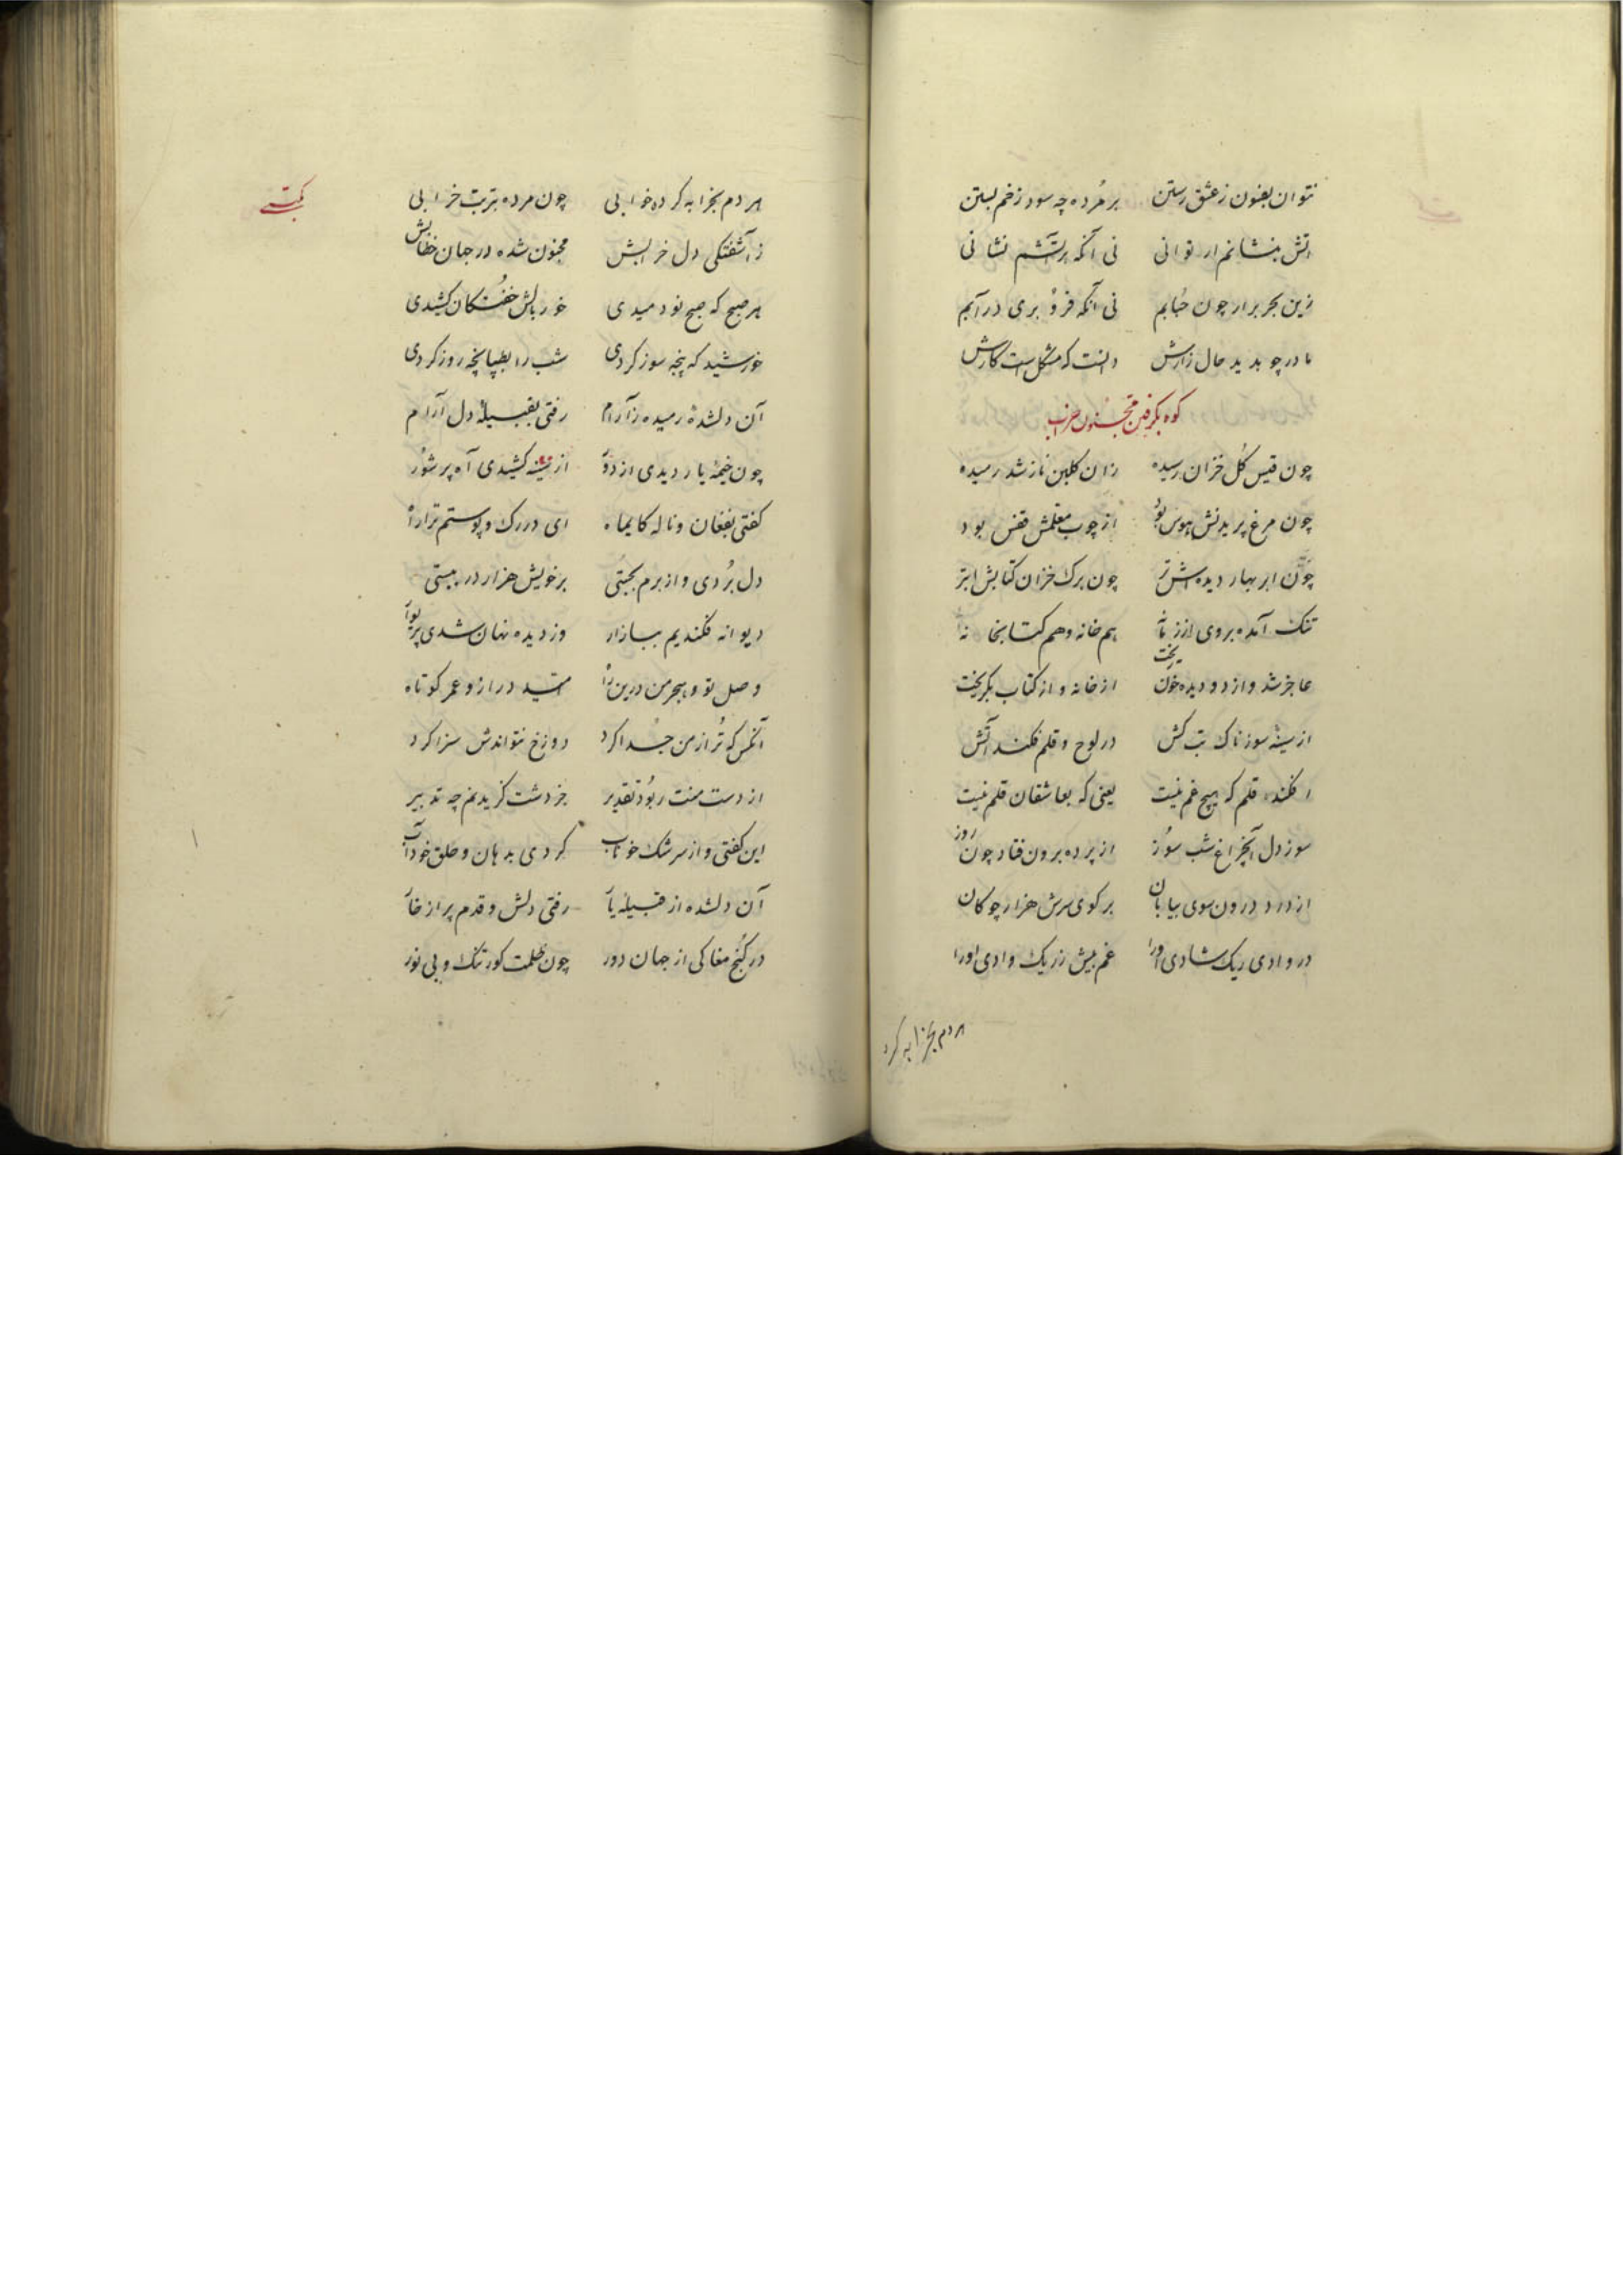 نتوان بفسون ز عشق رستن بر مُرده چه سود زخم بستن
آتش بنشانم ار توانی نی آنکه بر آتشم نشانی
زین بحر برار چون حبابم نی آنکه فرو بری در آبم
مادر چو بدید حال زارش دانست که مشکل است کارش
کوه بگرفتن مجنون
چون قیس گل خزان رسیده زان گلبن ناز شد رمیده
چون مرغ پریدنش هوس بود از چوب معلمش قفس بود
چون ابر بهار دیده‌اش تر چون برگ خزان کتابش ابتر
تنگ آمده بروی از زمانه هم خانه و هم کتابخانه
عاجز شد و از دو دیده خون ریخت از خانه و از کتاب بگریخت
از سینه سوزناک تب کش در لوح و قلم فکند آتش
افکند قلم که هیچ غم نیست یعنی که بعاشقان قلم نیست
سوز دل آن چراغ شب سوز از پرده برون فتاد چون روز
از درد درون سوی بیابان بر گوی سرش هزار چوگان
در وادی ریک شادی اورا غم بیش ز ریک وادی اورا
هر دم بخرابه کرد
هر دم بخرابه کرده خوابی چون مرده بتربت خرابی
ز آشفتگی دل خرابش مجنون شده در جهان خطابش
هر صبح که صبح نو دمیدی خور بالش خفتکان کشیدی
خورشید که پنجه سوز کردی شب را بطپانچه روز کردی
آن دلشدهٔ رمیده ز آرام رفتی بقبیلهٔ دل آرام
چون خیمهٔ یار دیدی از دور از سینه کشیدی آه پر شور
گفتی بفغان و ناله کای ماه ای در رگ و پوستم ترا راه
دل بُردی و از برم بجستی بر خویش هزار در ببستی
دیوانه فکندیم ببازار وز دیده نهان شدی پریوار
وصل تو و هجر من درین راه امید دراز و عمر کوتاه
آنکس که تُرا ز من جُدا کرد دوزخ نتواندش سزا کرد
از دست منت ربُود تقدیر جز دشت گزیدنم چه تدبیر
این گفتی و از سرشک خوناب کردی بدهان و حلق خود آب
آن دلشده از قبیلهٔ یار رفتی دلش و قدم پر از خار
در کُنج مغاکی از جهان دور چون ظلمت گور تنگ و بی نور